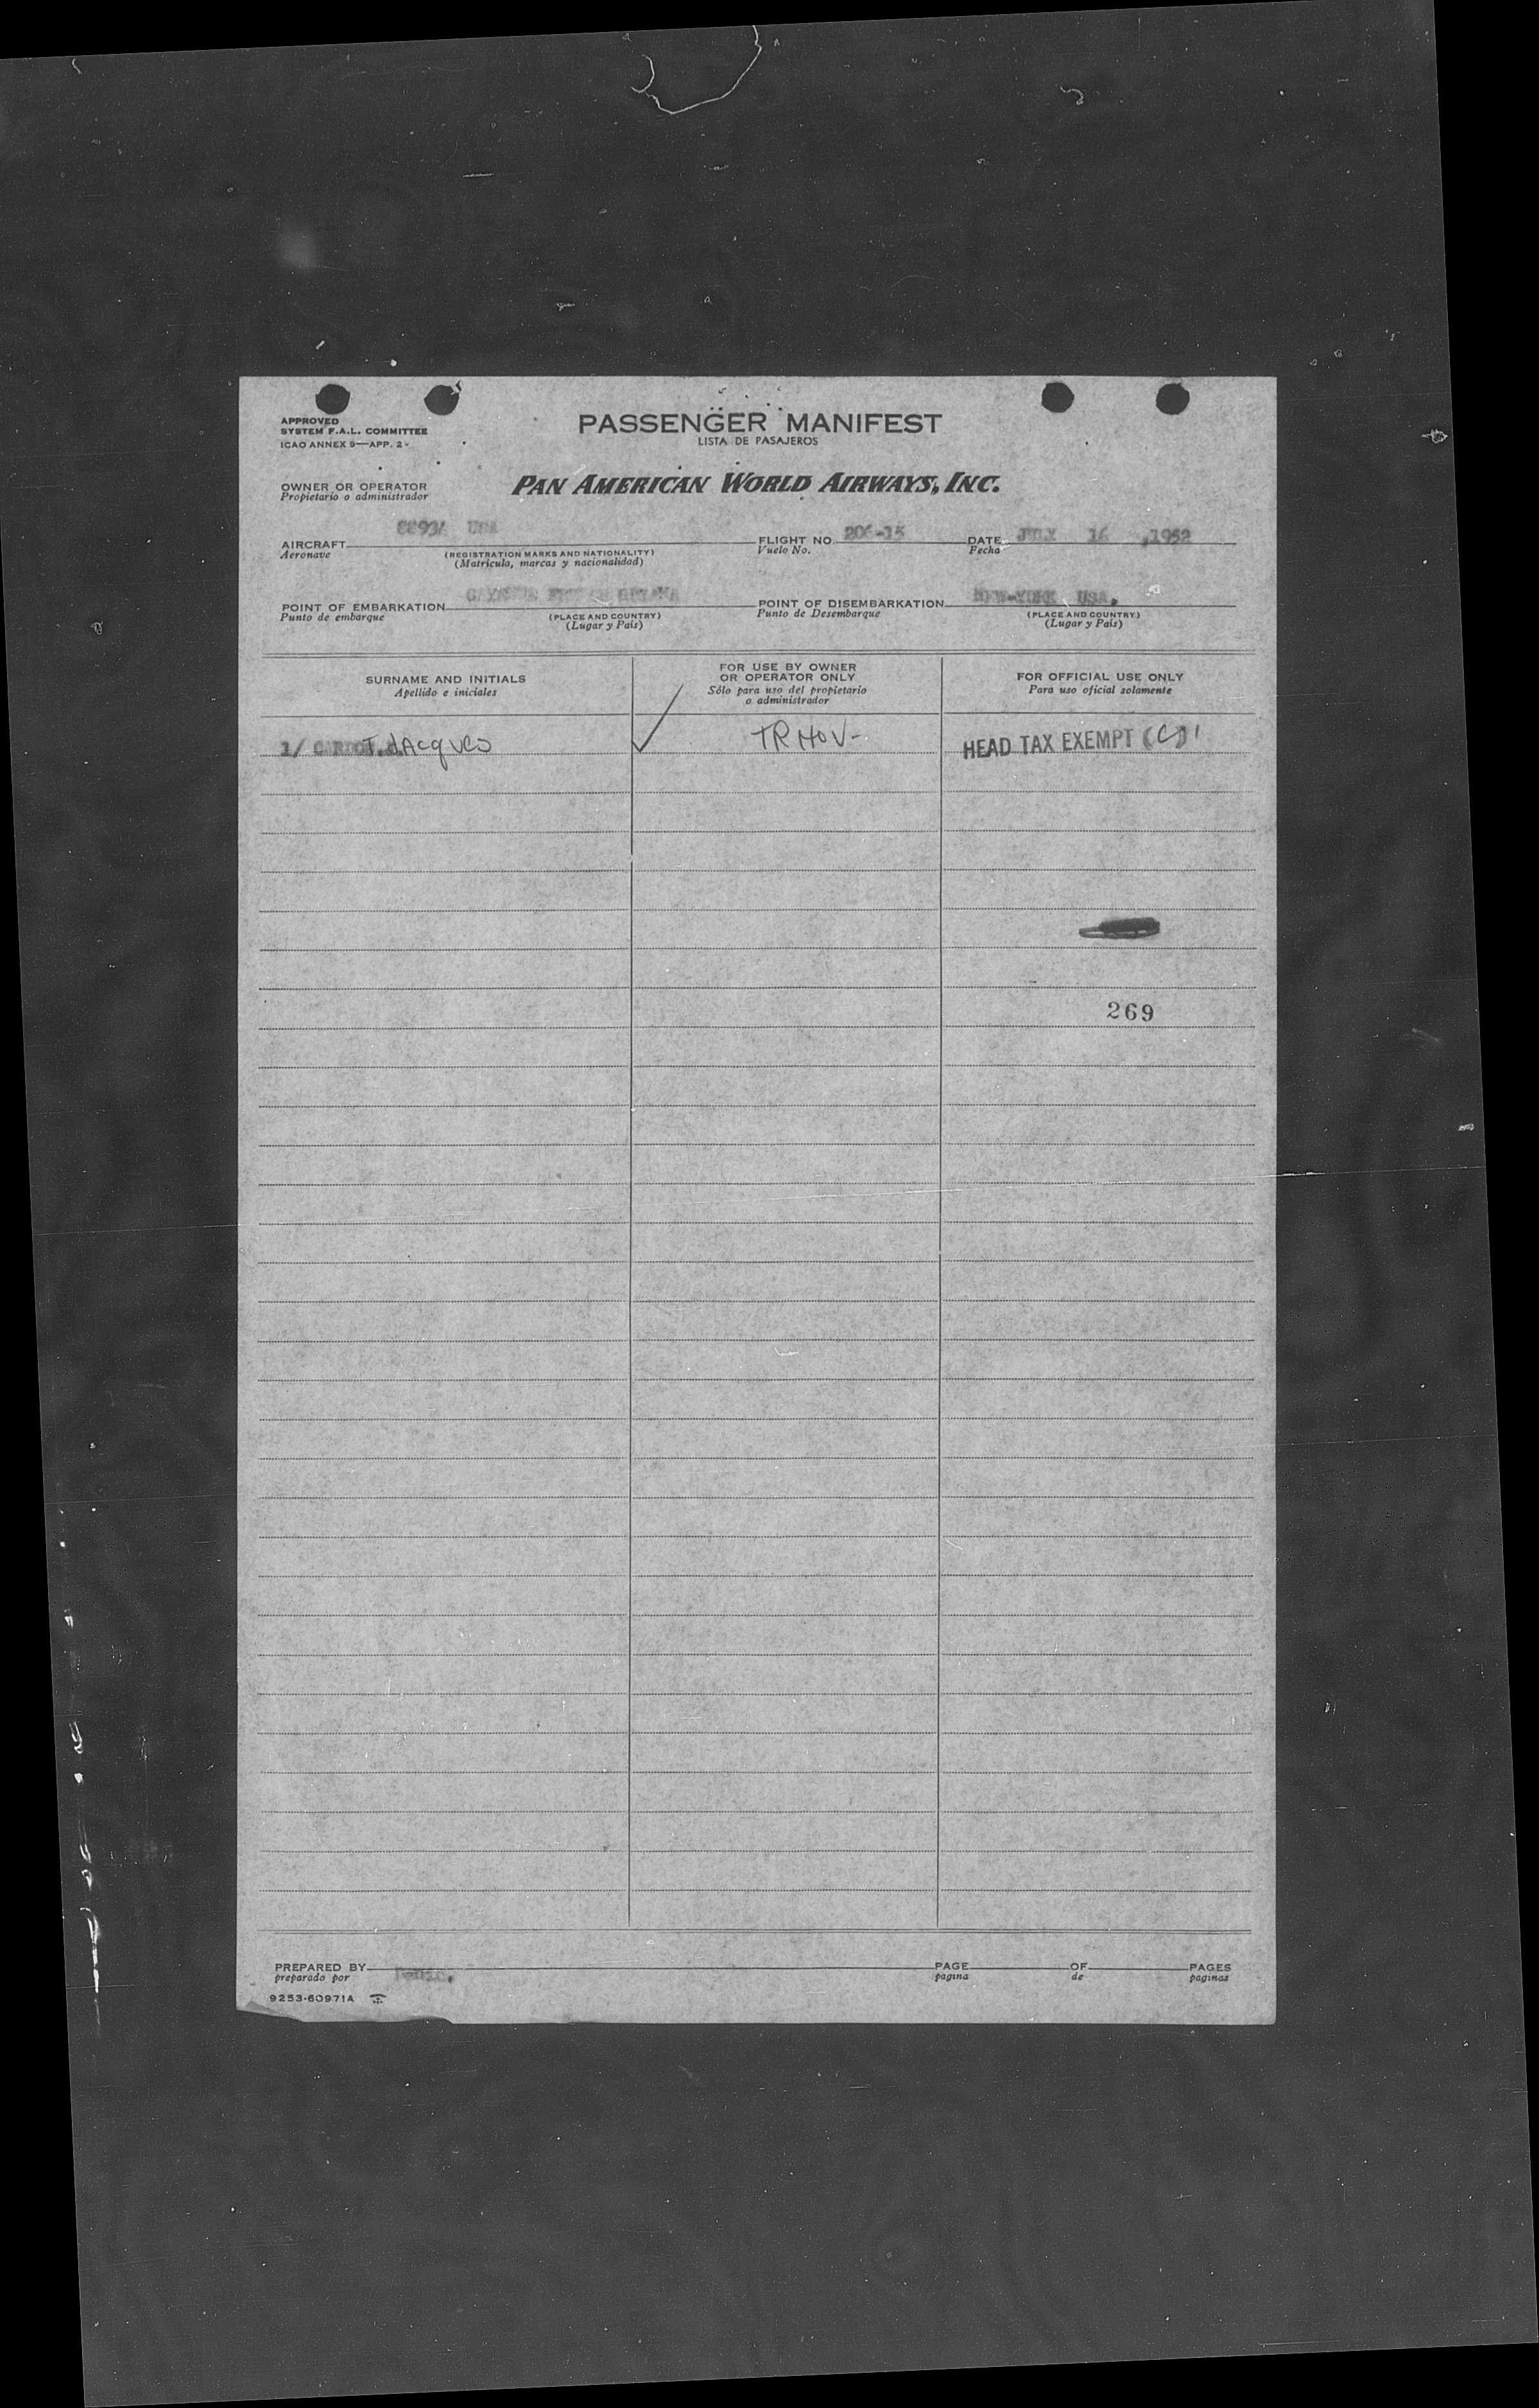 APPROVED
SYSTEM F.A.L. COMMITTEE
ICAO ANNEX 9—APP. 2
PASSENGER MANIFEST
LISTA DE PASAJEROS
OWNER OR OPERATOR
Propietario o administrador
PAN AMERICAN WORLD AIRWAYS, INC.
AIRCRAFT USA
Aeronave
(REGISTRATION MARKS AND NATIONALITY)
(Matrícula, marcas y nacionalidad)
FLIGHT NO. 206-15
Vuelo No.
DATE JULY 16 ,1952
Fecha
POINT OF EMBARKATION
Punto de embarque
(PLACE AND COUNTRY)
(Lugar y País)
POINT OF DISEMBARKATION NEW-YORK USA.
Punto de Desembarque
(PLACE AND COUNTRY)
(Lugar y País)
SURNAME AND INITIALS
Apellido e iniciales
FOR USE BY OWNER
OR OPERATOR ONLY
Sólo para uso del propietario
o administrador
FOR OFFICIAL USE ONLY
Para uso oficial solamente
1/ Jacques
HEAD TAX EXEMPT (C)
269
PREPARED BY
preparado por
PAGE OF PAGES
pagina de paginas
9253-60971A